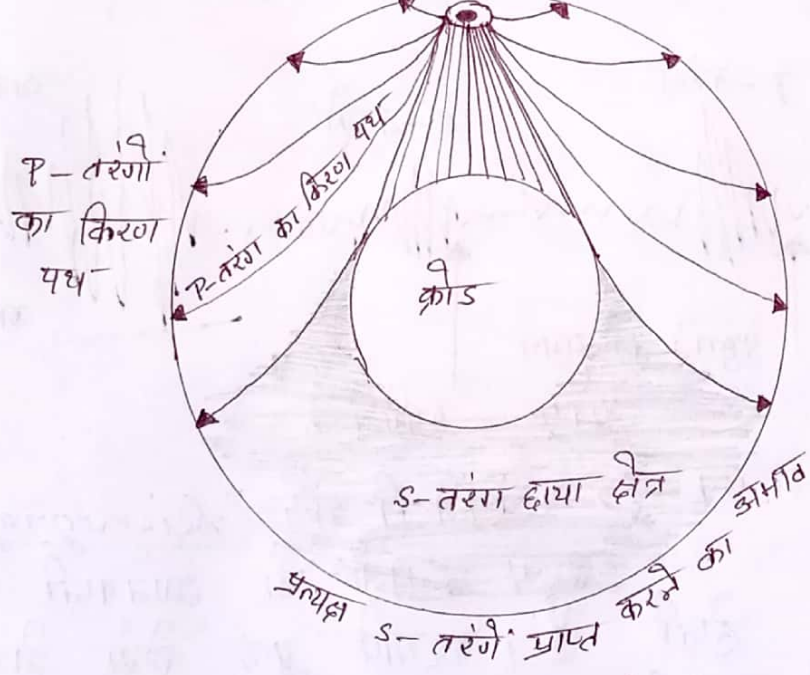 P- तरंगों
का किरण
पथ
P- तरंग का किरण पथ
क्रोड
S- तरंग छाया क्षेत्र
प्रत्यक्ष S- तरंगें प्राप्त करने का अभाव